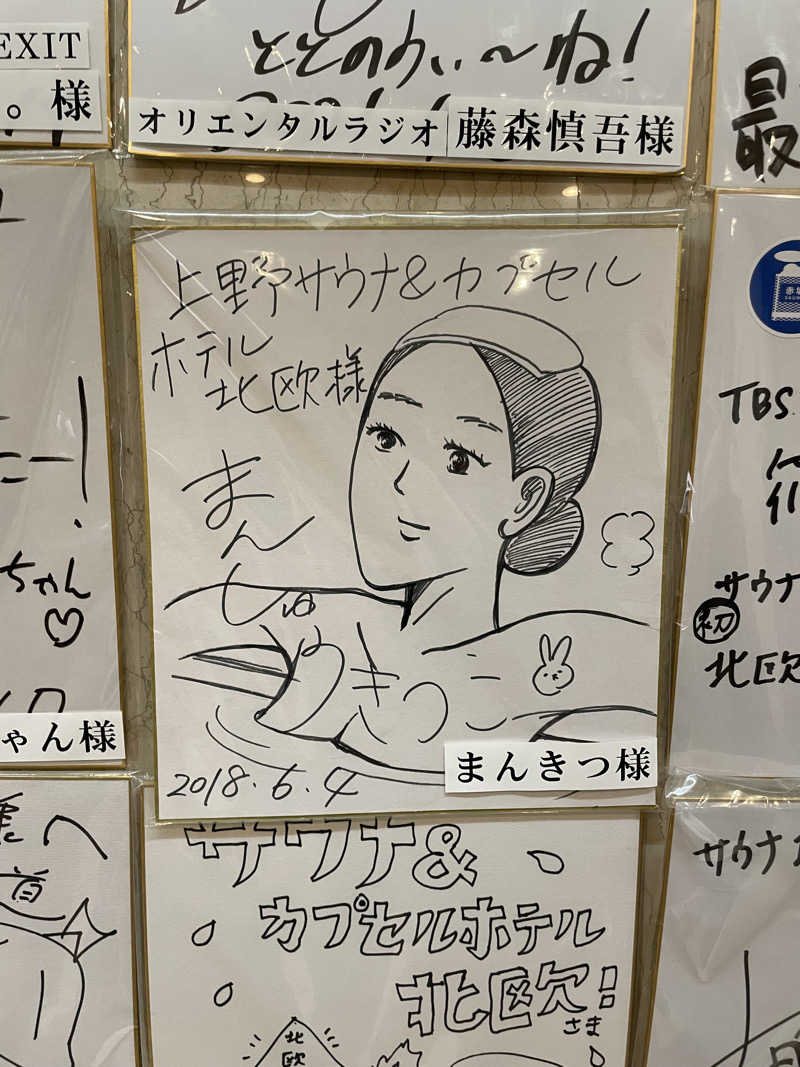 EXIT
。様
ととのうぃ〜ね!
オリエンタルラジオ 藤森慎吾様
最
上野サウナ&カプセル
ホテル
北欧様
まん
しゅう
きつこ
2018.6.4
まんきつ様
ー!
ちゃん
ゃん様
TBS
サウナ
初
北欧
サウナ&
カプセルホテル
北欧!
さま
北
欧
へ
首
サウナ